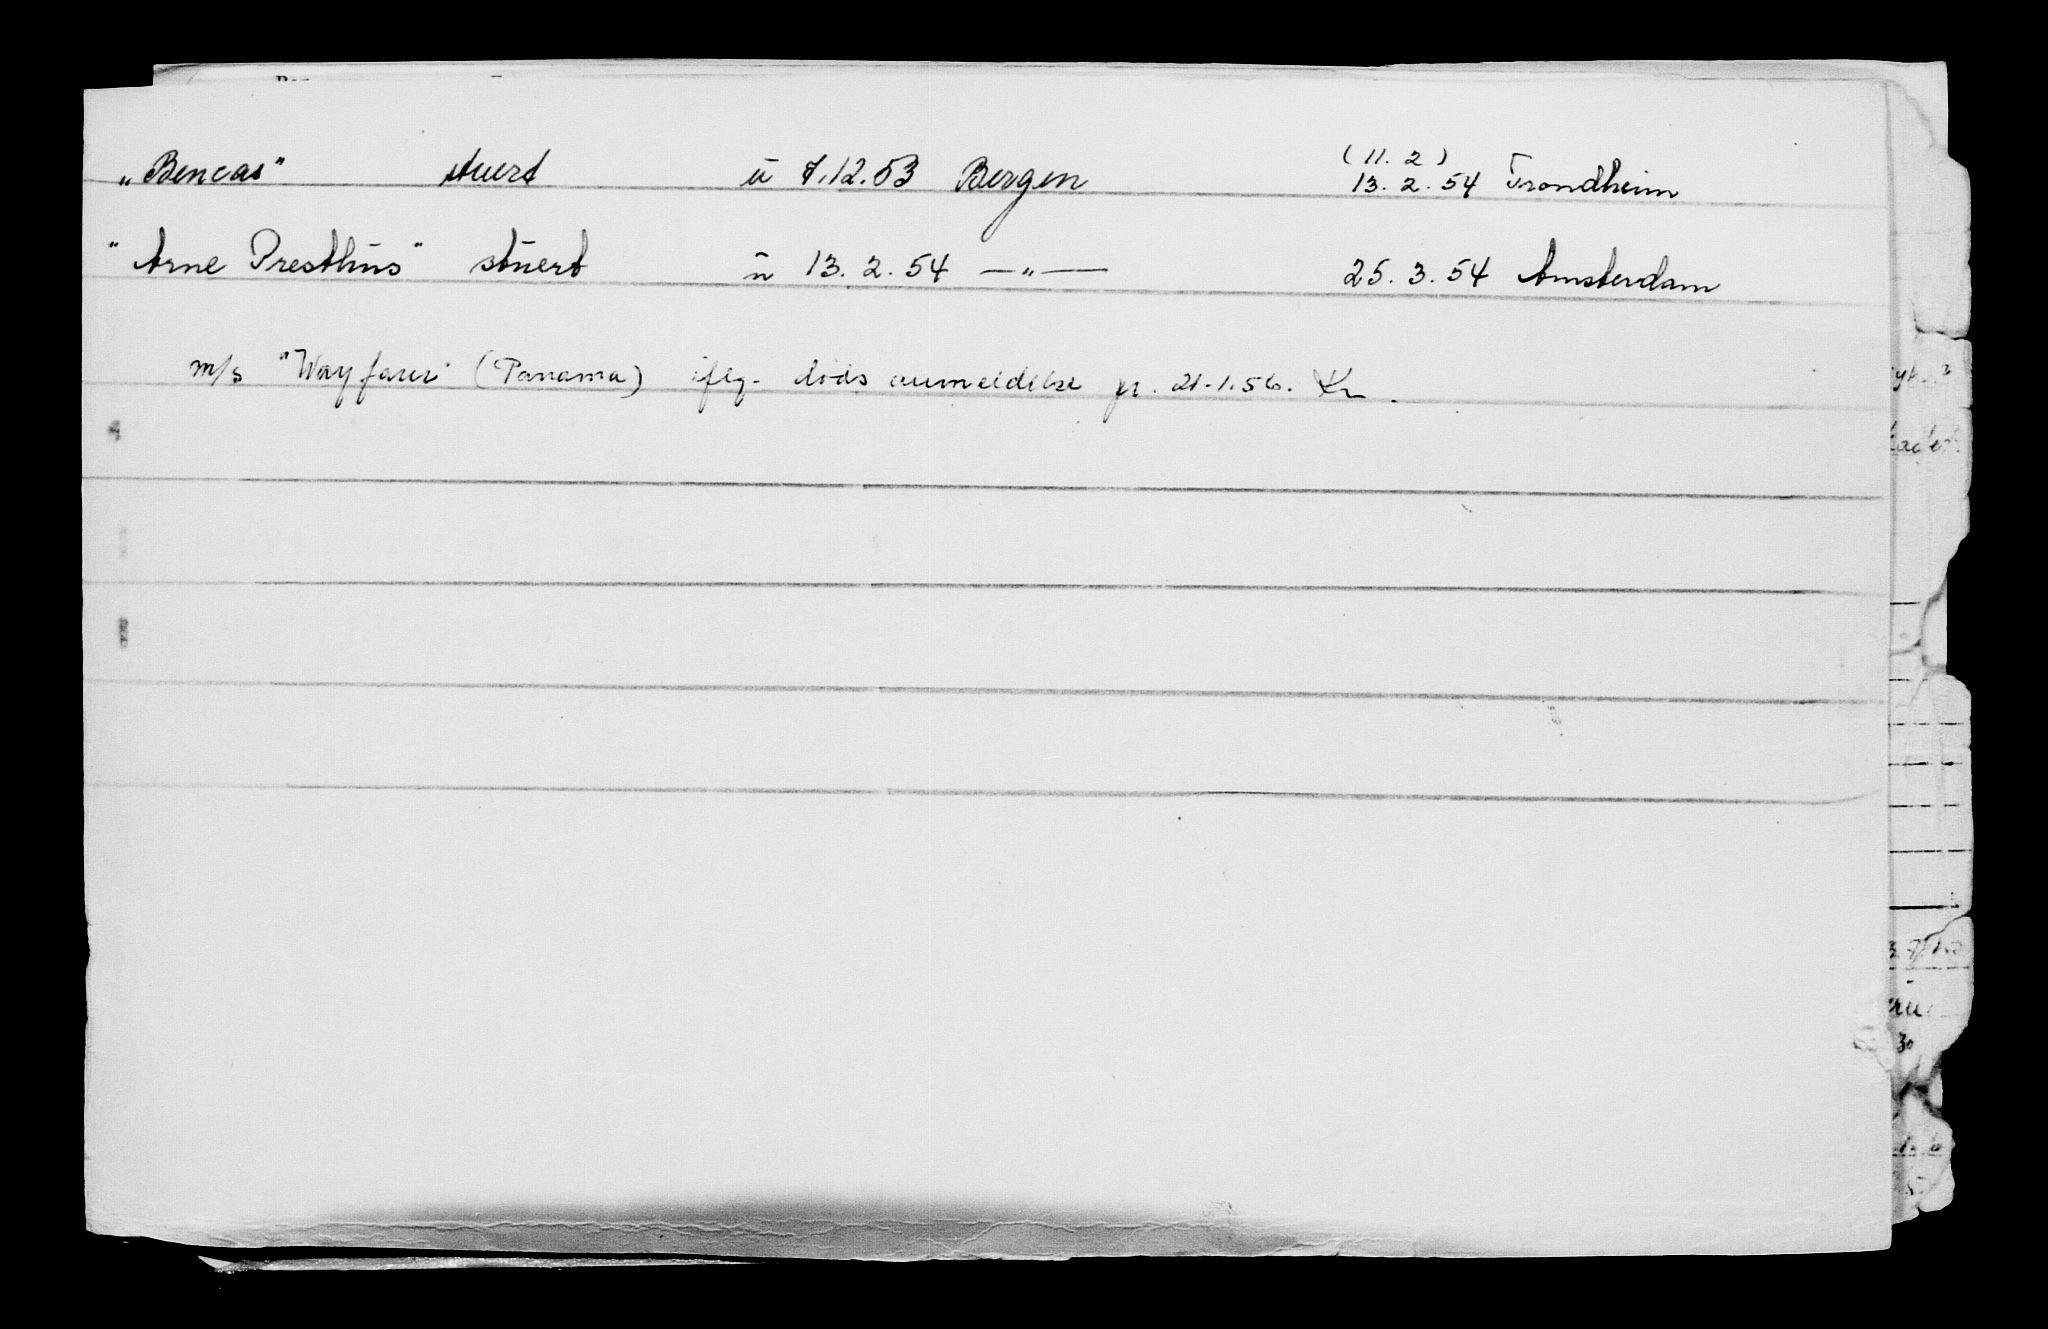 „Bencas" stuert u 7.12.53 Bergen (11.2) 13.2.54 Trondheim
"Arne Presthus" stuert u 13.2.54 —„— 25.3.54 Amsterdam
m/s "Wayfarer" (Panama) iflg. døds anmeldelse pr. 21.1.56. Kr.